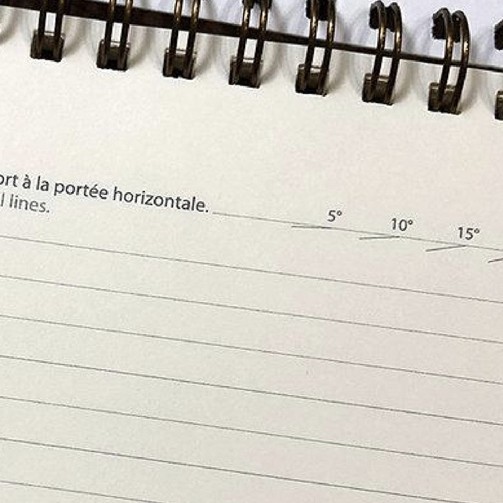 à la portée horizontale.
lines.
5° 10° 15°